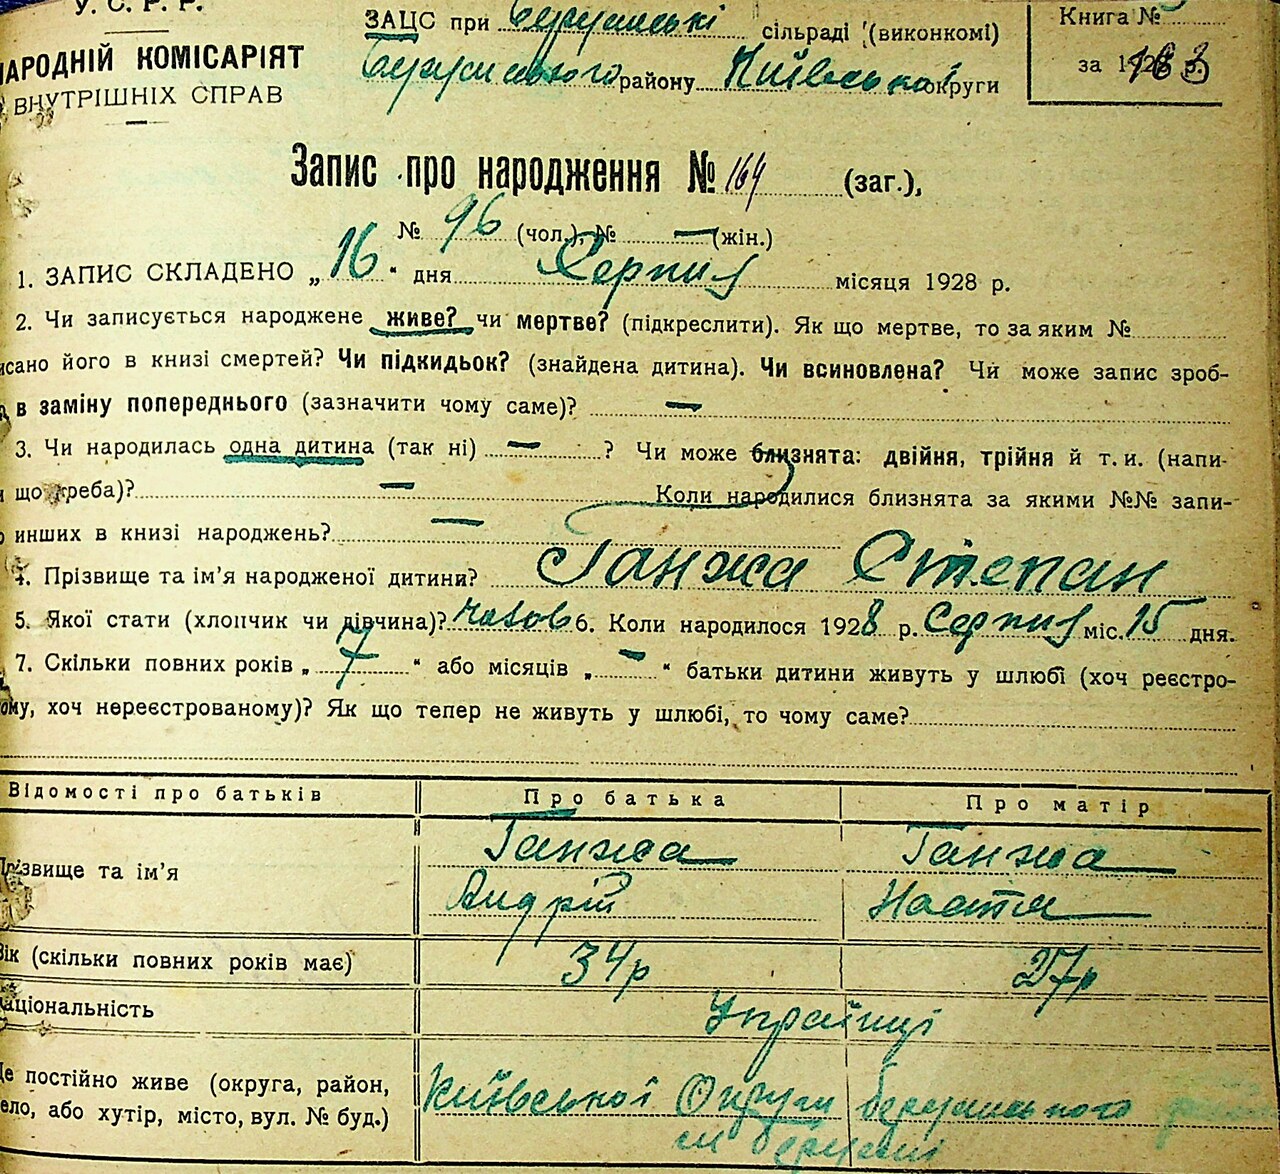 У. С. Р. Р.
НАРОДНІЙ КОМІСАРІЯТ
ВНУТРІШНІХ СПРАВ
ЗАЦС при сільраді (виконкомі)
району Київської округи
Книга №
за 19 р.
163
Запис про народження № 164 (заг.),
№ 96 (чол.), № — (жін.)
1. ЗАПИС СКЛАДЕНО „ 16 “ дня Серпня місяця 1928 р.
2. Чи записується народжене живе? чи мертве? (підкреслити). Як що мертве, то за яким №
исано його в книзі смертей? Чи підкидьок? (знайдена дитина). Чи всиновлена? Чи може запис зроб-
в заміну попереднього (зазначити чому саме)? —
3. Чи народилась одна дитина (так ні) — ? Чи може близнята: двійня, трійня й т. и. (напи-
що треба)? — Коли народилися близнята за якими №№ запи-
инших в книзі народжень? —
4. Прізвище та ім’я народженої дитини? Ганжа Степан
5. Якої стати (хлопчик чи дівчина)? чолов 6. Коли народилося 1928 р. Серпня міс. 15 дня.
7. Скільки повних років „ 7 “ або місяців „ — “ батьки дитини живуть у шлюбі (хоч реєстро-
ому, хоч нереєстрованому)? Як що тепер не живуть у шлюбі, то чому саме?
Відомості про батьків Про батька Про матір
Прізвище та ім’я Ганжа Андрій Ганжа Настя
Вік (скільки повних років має) 34р 27р
Національність Українці
Де постійно живе (округа, район,
село, або хутір, місто, вул. № буд.)
Київської Округи